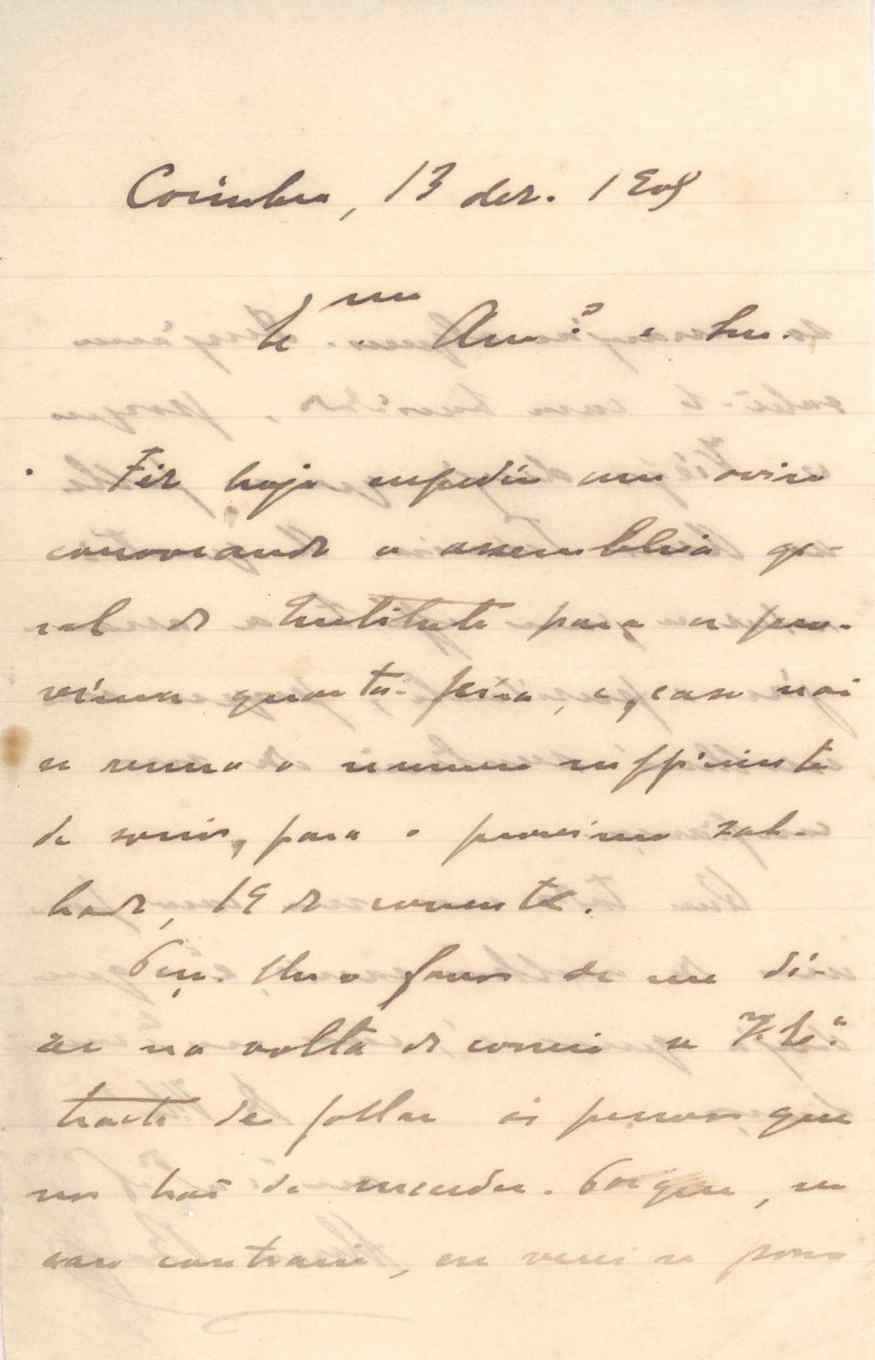 Coimbra, 13 dez. 1908
Ex.mo Am.o e Snr.
Fiz hoje expedir um aviso
convocando a assembleia ge-
ral do Instituto para a pro-
xima quarta-feira, e, caso não
se reuna o numero sufficiente
de socios, para o proximo sab-
bado, 19 do corrente.
Peço-lhe o favor de me di-
zer na volta do correio se V. Ex.a
tracta de fallar ás pessoas que
nos hão de
succeder. Porque, no
caso contrario, eu verei se posso